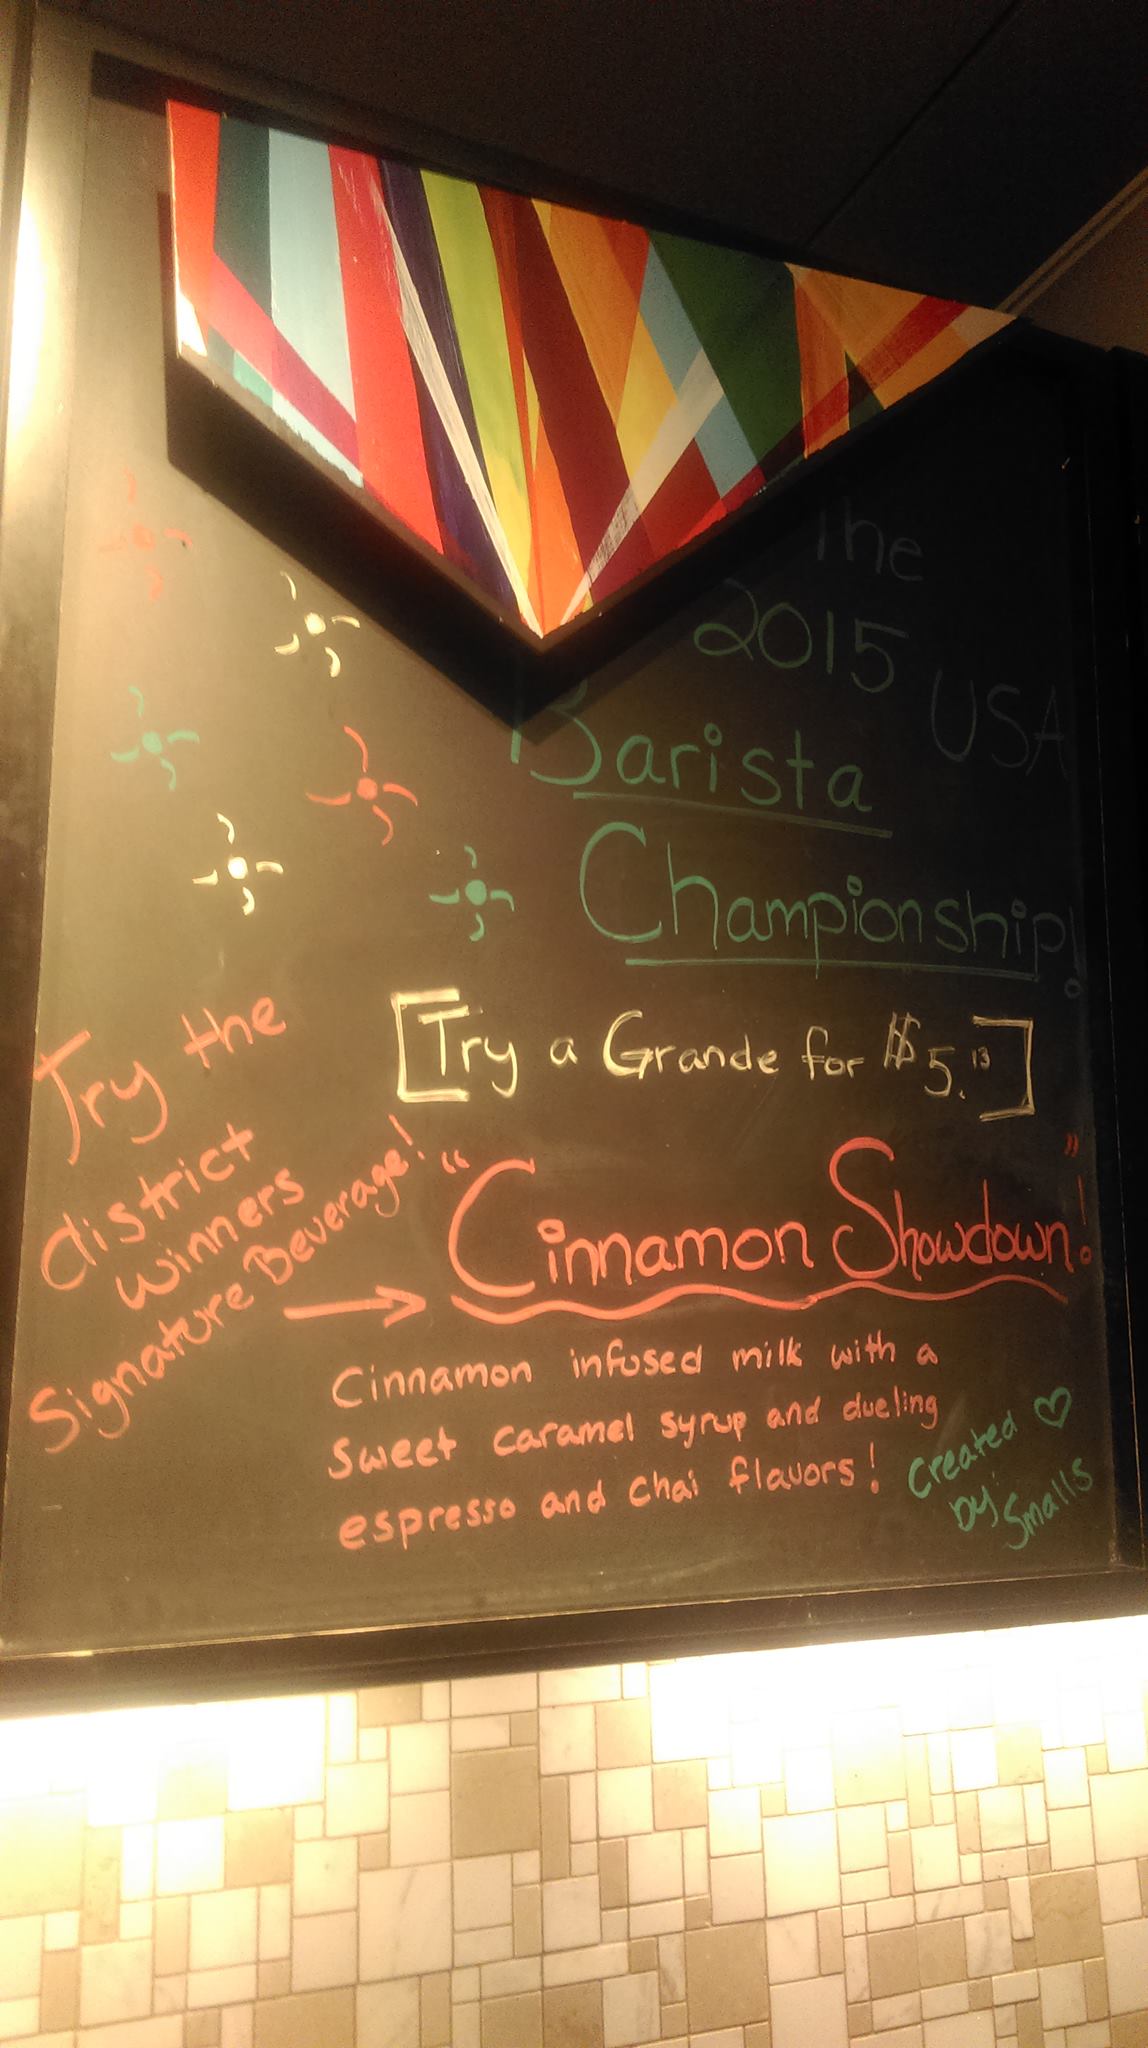 The
2015 USA
Barista
Championship!
[Try a Grande for $5.13]
Try the
district
winners
Signature Beverage!
"Cinnamon Showdown!"
Cinnamon infused milk with a
sweet caramel syrup and dueling
espresso and chai flavors!
Created ♡
by: Smalls